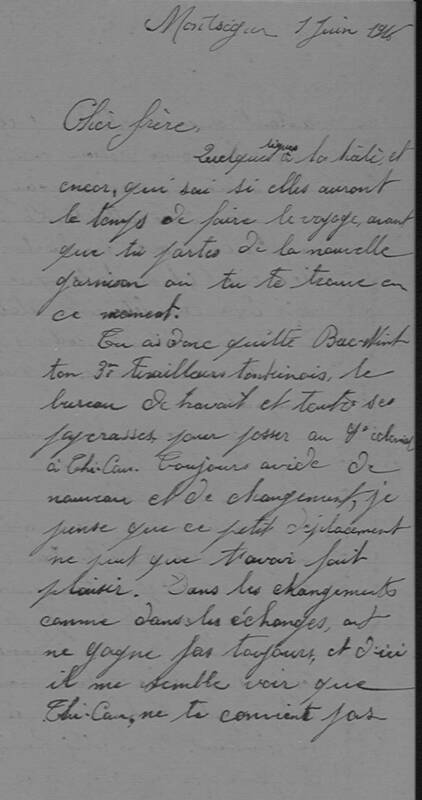 Montségur 1 Juin 19
Cher frère,
Quelques lignes à la hâte, et
encor, qui sai si elles auront
le temps de faire le voyage, avant
que tu partes de la nouvelle
garnison où tu te trouve en
ce moment.
Tu as donc quitté Bac-Ninh
ton 3e Tirailleurs tonkinois, le
bureau de travail et toutes ses
paperasses, pour passer au 9e colonial
à Thi-Cau. Toujours avide de
nouveau et de changement, je
pense que ce petit déplacement
ne peut que t'avoir fait
plaisir. Dans les changements
comme dans les échanges, ont
ne gagne pas toujours, et d'ici
il me semble voir que
Thi-Cau, ne te convient pas